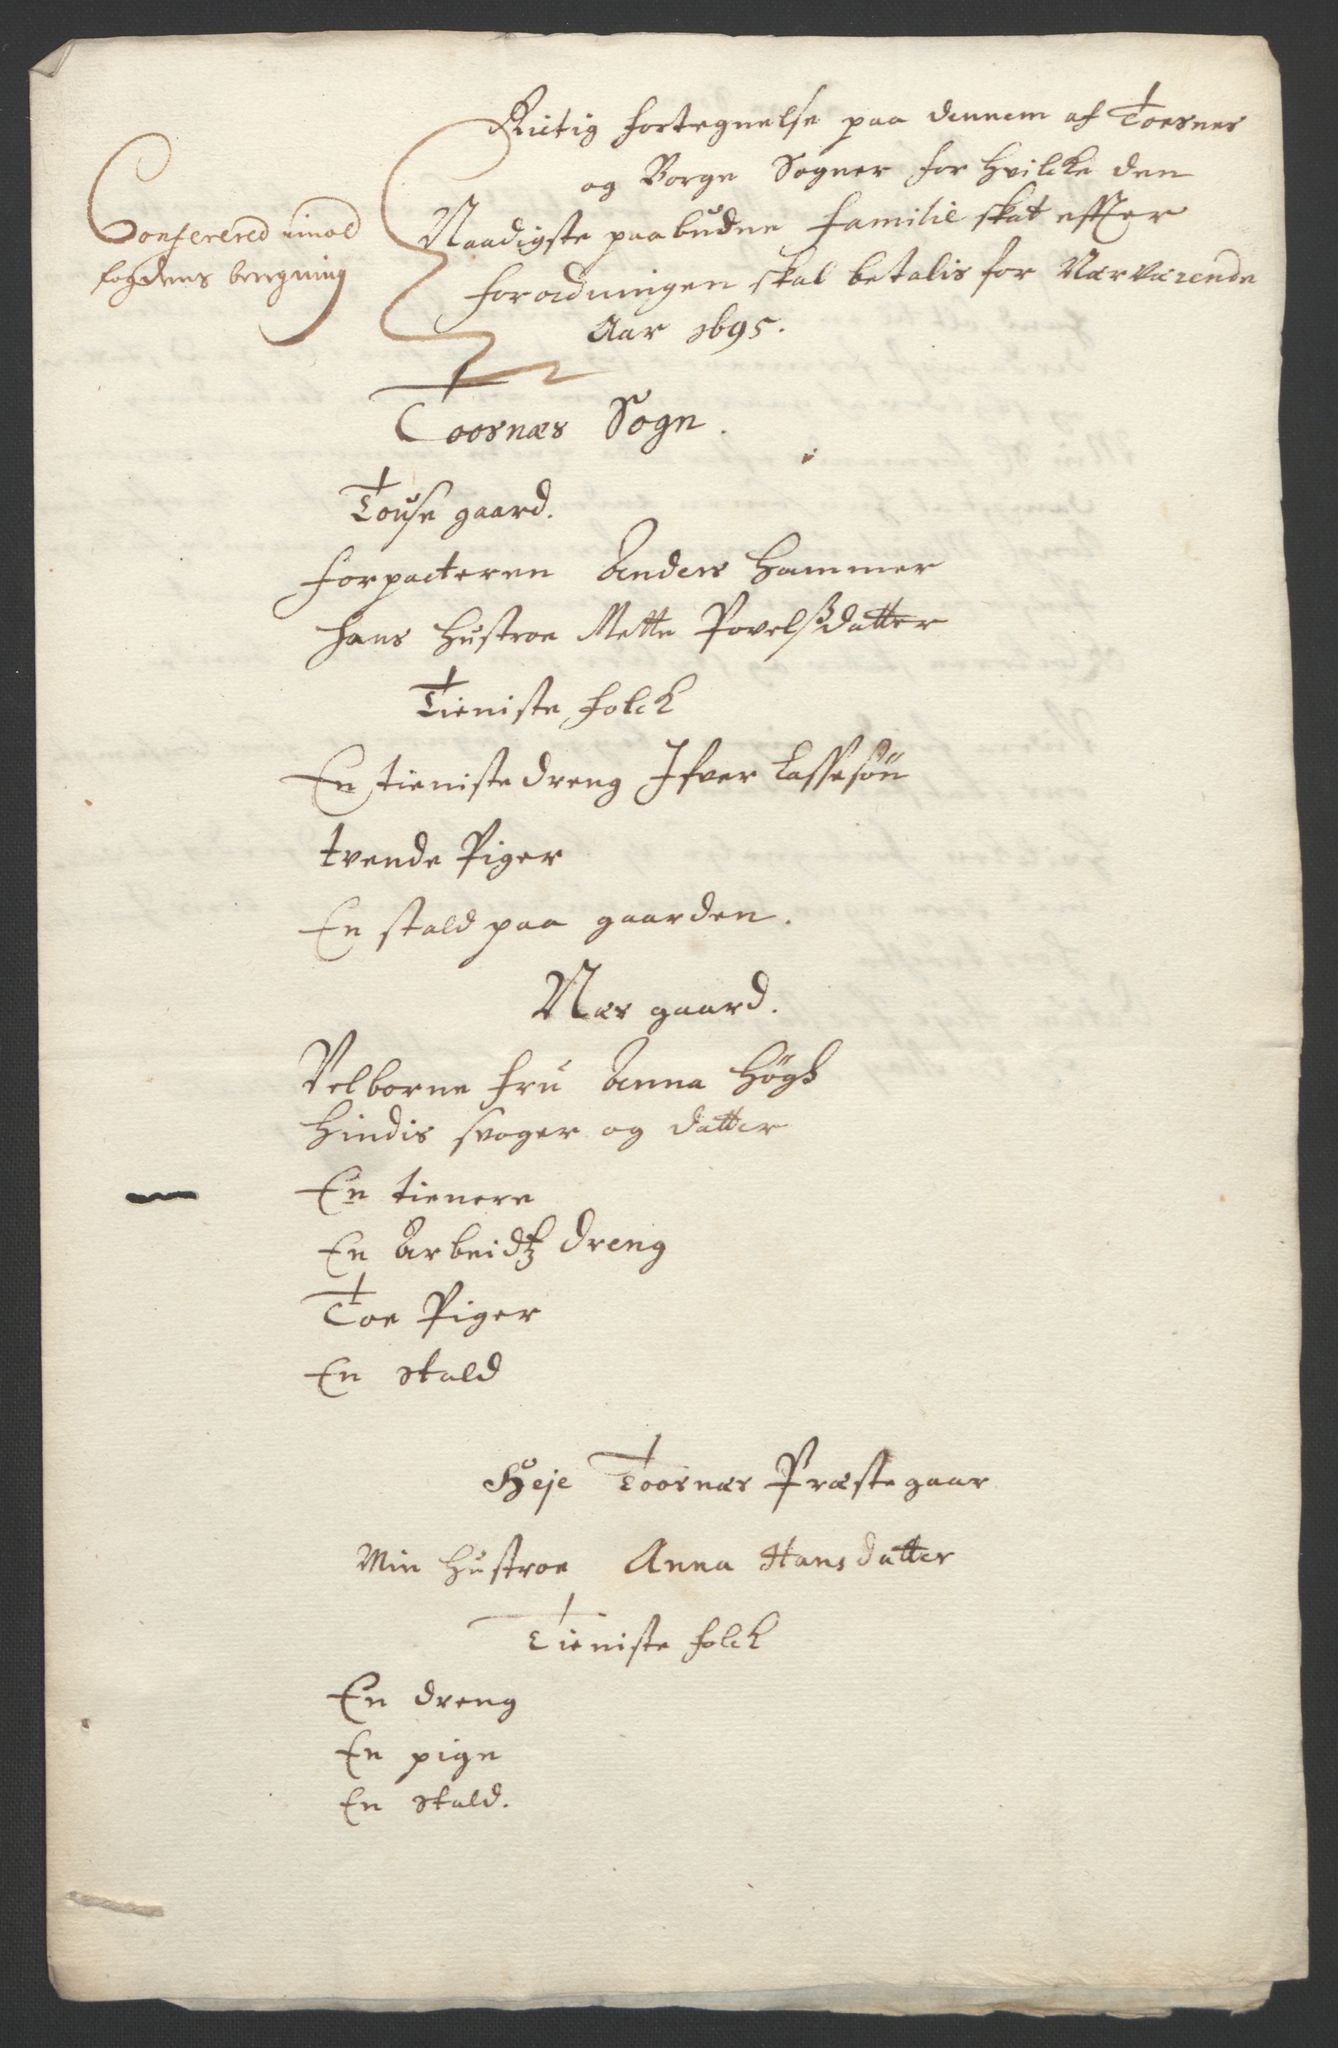 Rictig fortegnelse paa dennem af Toesnes
og Borge Sogner for hvilcke den
Naadigste paabudne familie skat effter
forordningen skal betalis for Nærværende
Aar 1695.
Conferered imod
fogdens beregning
Toosnæs Sogn.
Touse gaard.
forpacteren Anders Hammer
hans Hustroe Mette Povelsdatter
Tieniste folck
En tieniste dreng Ifver Lassesön
tvende Piger
En stald paa gaarden.
Næs gaard.
Velborne fru Anna Högh
Hindis svoger og datter
En tienere
En Arbeidtz dreng
Toe Piger
En stald
Heje Toosnæs Præstegaar
Min Hustroe Anna Hansdatter
Tieniste folck
En dreng
En pige
En stald.